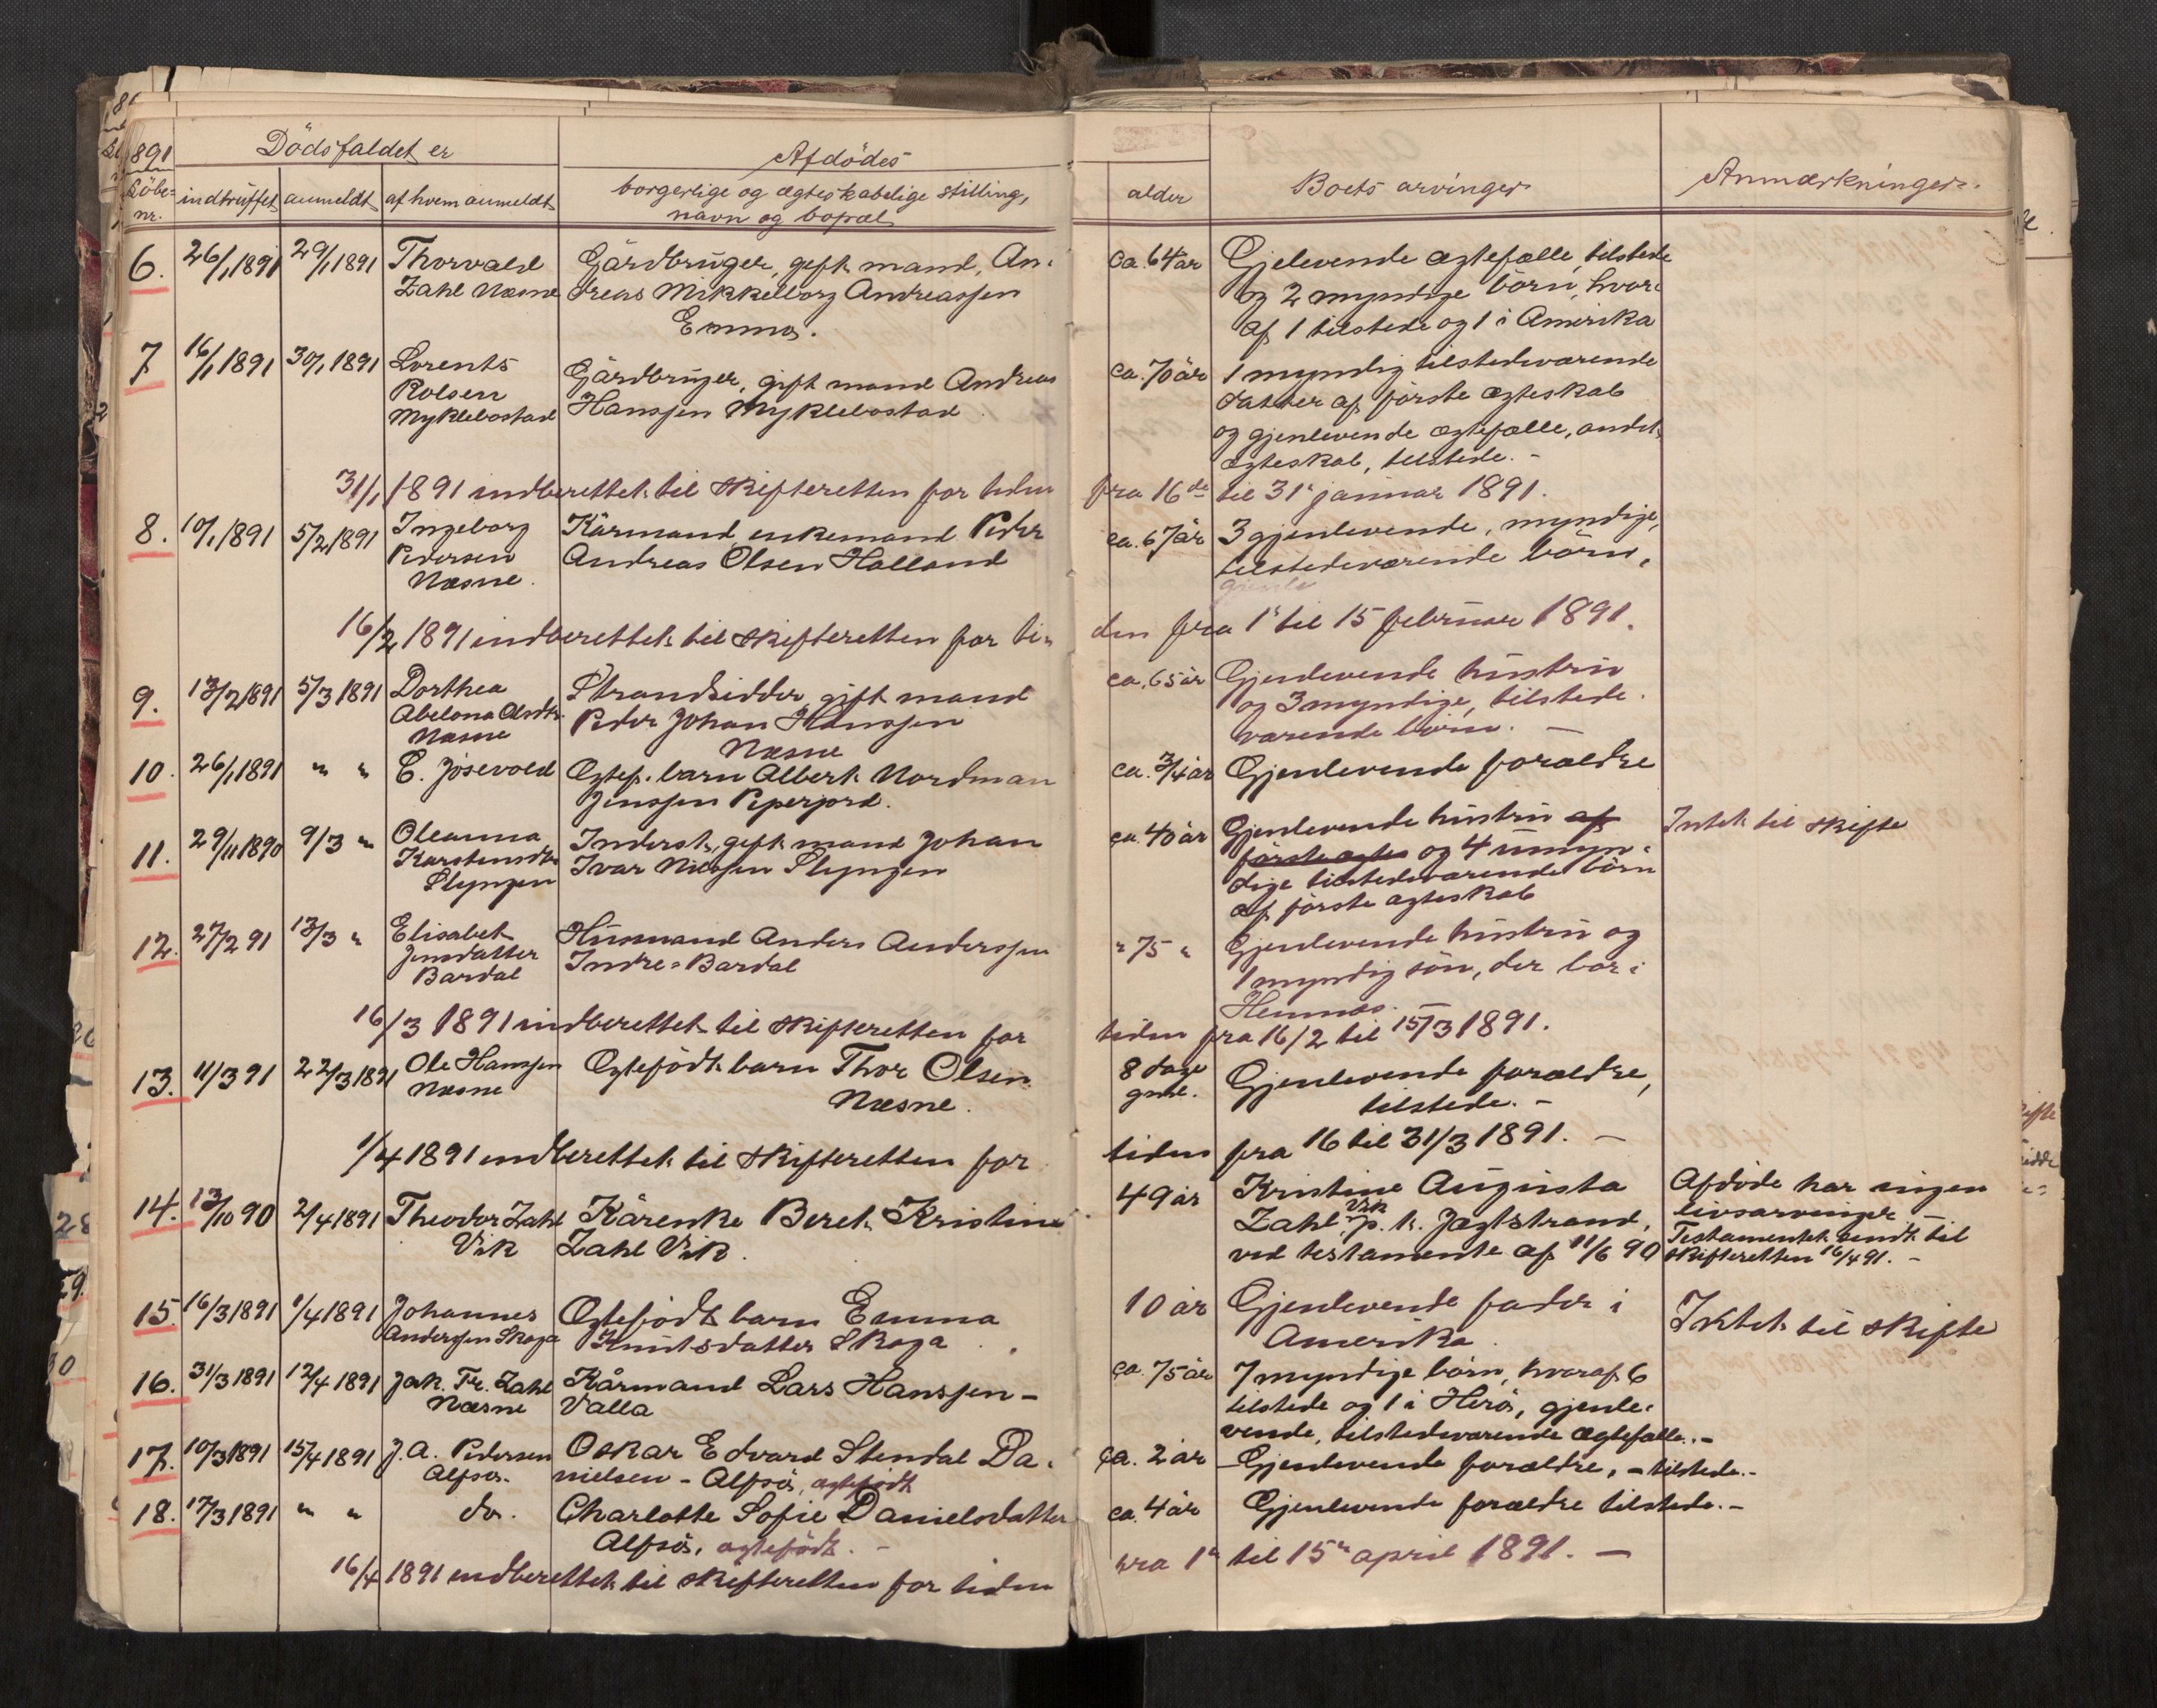 1891
Dödsfaldet er
Afdödes
Löbe-
nr.
indtruffet
anmeldt
af hvem anmeldt
borgerlige og ægteskabelige stilling,
navn og bopæl
alder
Boets arvinger
Anmærkninger.
6. 26/1 1891 29/1 1891 Thorvald Gårdbruger, gift mand, An- ca. 64 år Gjelevende ægtefælle, tilstede
Zahl Næsne dreas Mikkelborg Andreassen og 2 myndige börn, hvor-
Emmes. af 1 tilstede og 1 i Amerika
7 16/1 1891 30/1 1891 Lorents Gårdbruger, gift mand Andreas ca. 70 år 1 myndig tilstedeværende
Rolsen Hanssen Myklebostad datter af förste ægteskab
Myklebostad og gjenlevende ægtefælle, andet
ægteskab, tilstede. -
31/1 1891 indberettet til skifteretten for tiden fra 16de til 31' januar 1891.
8. 10/1 1891 5/2 1891 Ingeborg Kårmand, enkemand Peder ca. 67 år 3 gjenlevende, myndige,
Pedersen Andreas Olsen Halland tilstedeværende börn.
Næsne.
16/2 1891 indberettet til skifteretten for ti- den fra 1' til 15 februar 1891.
9. 13/2 1891 5/3 1891 Dorthea Strandsidder, gift mand ca. 65 år Gjenlevende hustru
Abelona Olsdtr. Peder Johan Hanssen og 3 myndige, tilstede-
Næsne Næsne værende börn. -
10. 26/1 1891 " " C. Jösevold Ægtef. barn Albert Nordman ca. 3/4 år Gjenlevende forældre
Jenssen Peperjord.
11. 29/11 1890 9/3 " Oleanna Inderst, gift mand Johan ca. 40 år Gjenlevende hustru af Intet til skifte
Karstensdtr. Ivar Nilssen Slyngen förste ægtes og 4 umyn-
Slyngen dige tilstedeværende börn
af förste ægteskab
12. 27/2 91 13/3 " Elisabet Husmand Anders Anderssen " 75 " Gjenlevende hustru og
Jensdatter Indre-Bardal 1 myndig sön, der bor i
Bardal Hemnæs.
16/3 1891 indberettet til skifteretten for tiden fra 16/2 til 15/3 1891.
13. 11/3 91 22/3 1891 Ole Hanssen Ægtefödt barn Thor Olsen 8 dage Gjenlevende forældre,
Næsne Næsne. gml. tilstede. -
1/4 1891 indberettet til skifteretten for tiden fra 16 til 31/3 1891. -
14. 13/10 90 2/4 1891 Theodor Zahl Kårenke Beret Kristine 49 år Kristine Augusta Afdöde har ingen
Vik Zahl Vik. Zahl, Vik p. t. Jægtstrand, livsarvinger -
ved testamente af 11/6 90 Testamentet sendt til
skifteretten 16/4 91. -
15. 16/3 1891 1/4 1891 Johannes Ægtefödt barn Emma 10 år Gjenlevende fader i Intet til skifte
Anderssen Skoga Knutsdatter Skoga Amerika.
16. 31/3 1891 12/4 1891 Jak. Fr. Zahl Kårmand Lars Hanssen - ca. 75 år 7 myndige börn, hvoraf 6
Næsne Valla tilstede og 1 i Herö, gjenle-
vende, tilstedeværende ægtefælle. -
17. 10/3 1891 15/4 1891 J. A. Pedersen Oskar Edvard Stendal Da- ca. 2 år Gjenlevende forældre, - tilstede. -
Alfsö. nielsen - Alfsö, ægtefödt
18. 17/3 1891 " " do. Charlotte Sofie Danielsdatter ca. 4 år Gjenlevende forældre tilstede. -
Alfsö, ægtefödt. -
16/4 1891 indberettet til skifteretten for tiden fra 1' til 15' april 1891. -